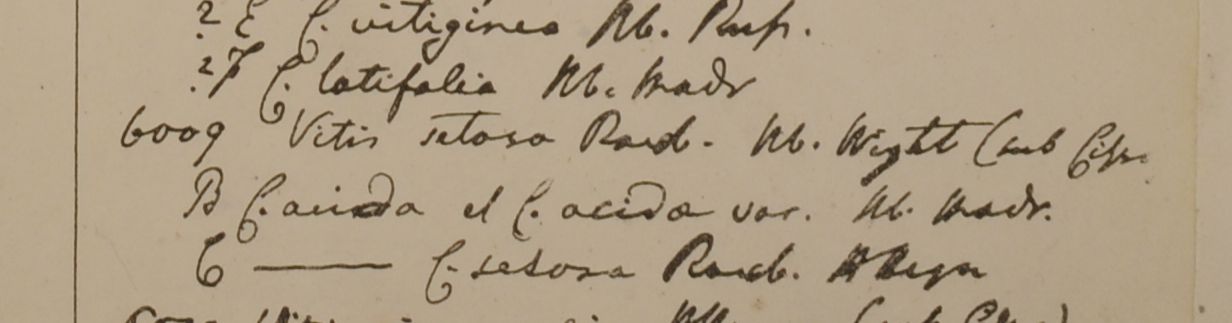 ? E C. vitiginea Hb. Russ.
? F C. latifolia Hb. Madr
6009 Vitis setosa Roxb. Hb. Wight (sub Cisso
B C. acida et C. acida var. Hb. Madr.
C — C. setosa Roxb. H